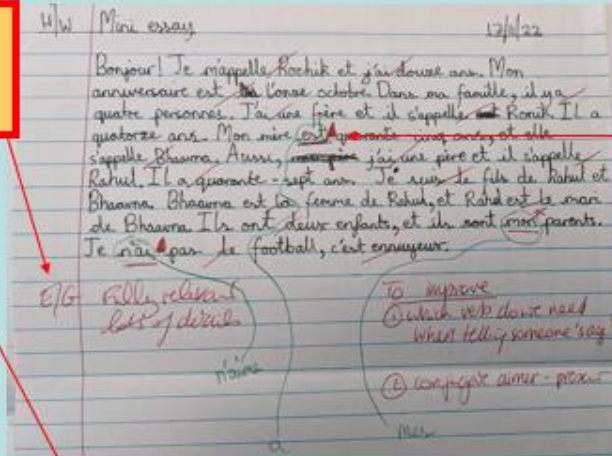 H/W Mini essay 12/11/22
Bonjour! Je m'appelle Rochik et j'ai douze ans. Mon
anniversaire est l'onze octobre. Dans ma famille, il y a
quatre personnes. J'ai une frère et il s'appelle Ronik. Il a
quatorze ans. Mon mère est quarante cinq ans, et elle
s'appelle Bhaavna. Aussi, j'ai une père et il s'appelle
Rahul. Il a quarante-sept ans. Je suis le fils de Rahul et
Bhaavna. Bhaavna est la femme de Rahul, et Rahul est le mari
de Bhaavna. Ils ont deux enfants, et ils sont mon parents.
Je n'ai pas le football, c'est ennuyeux.
E/G Fully relevant
lots of details
n'aime
a
mes
To improve
① which verb do we need
when telling someone's age
② conjugate aimer -